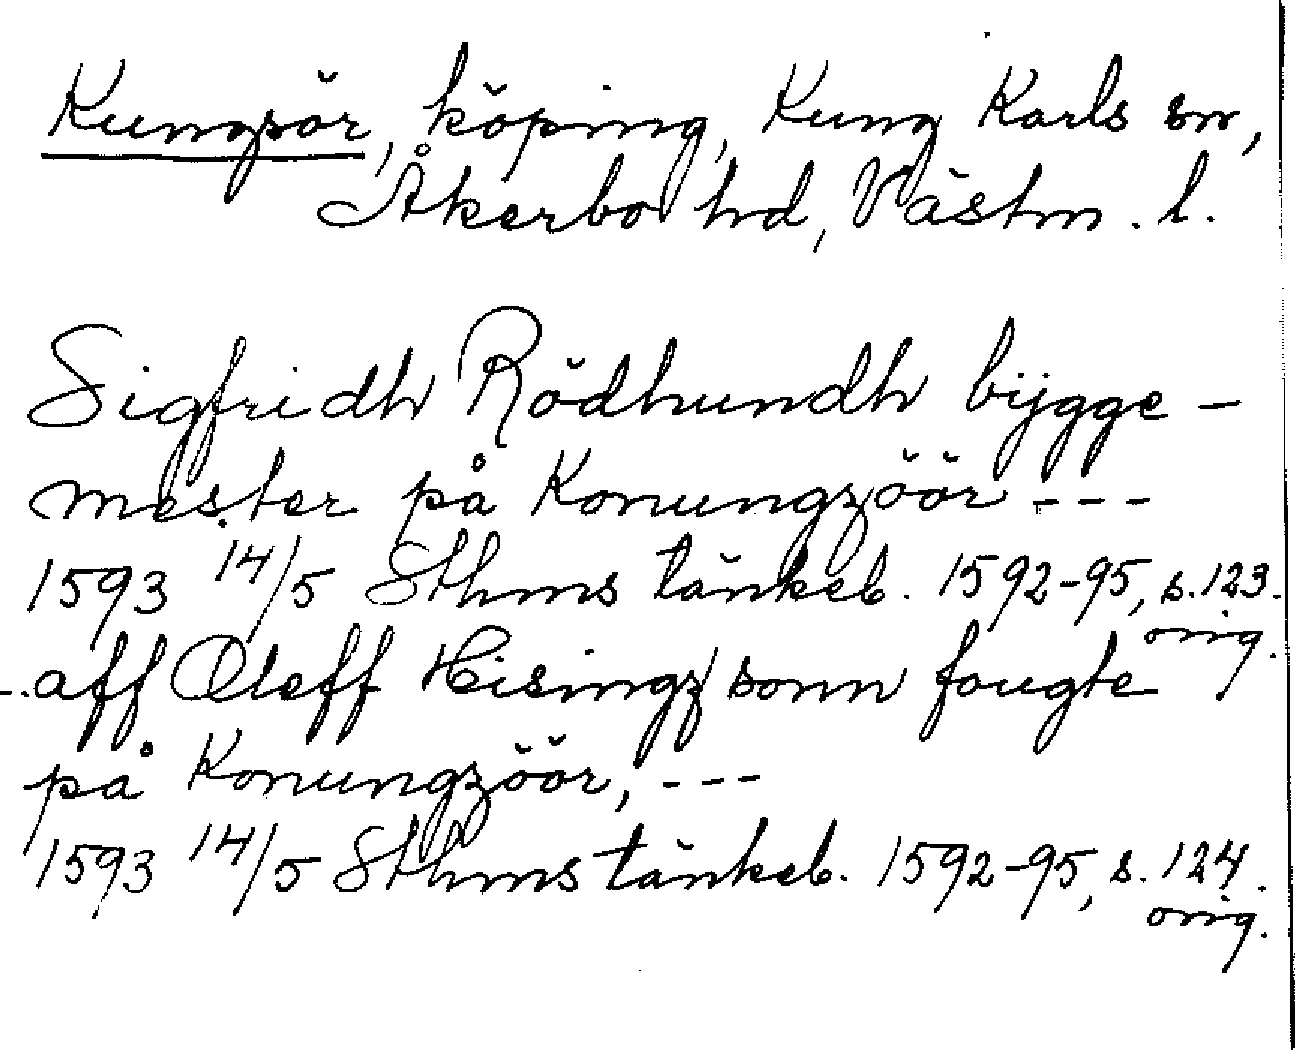 Kungsör, köping, Kung Karls sn,
Åkerbo hd, Västm. l.
Sigfridh Rödhundh bÿgge-
mester på Konungzöör ---
1593 14/5 Sthms tänkeb. 1592-95, s. 123.
orig.
-.aff Oleff Hisingz sonn fougte
på Konungzöör, ---
1593 14/5 Sthms tänkeb. 1592-95, s. 124.
orig.